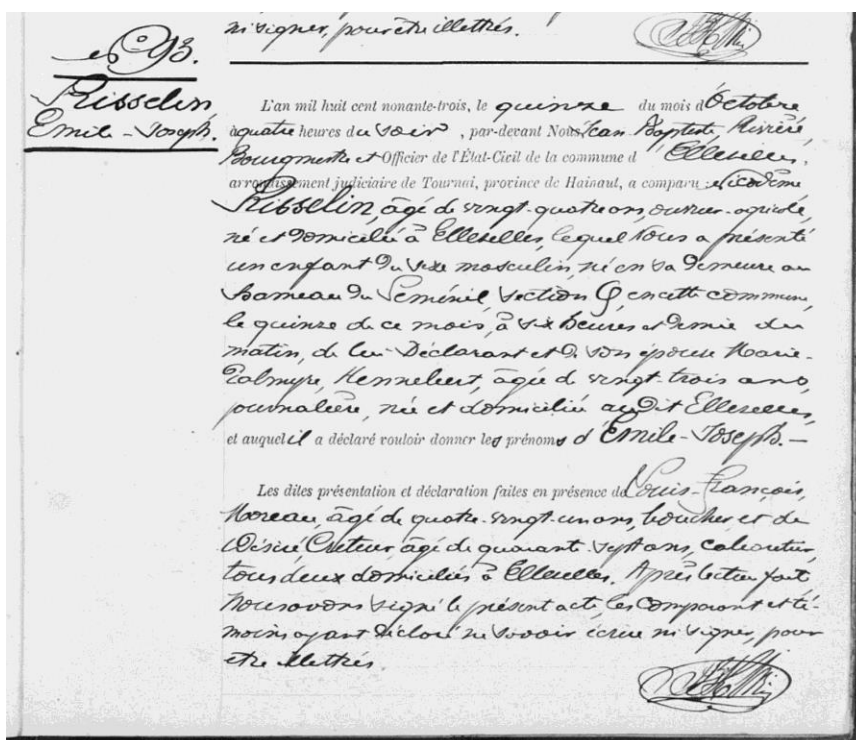 ni signer, pour être illettrés.
N° 93.
Risselin
Emile-Joseph.
L'an mil huit cent nonante-trois, le quinze du mois d'Octobre
à quatre heures du soir, par-devant Nous Jean Baptiste, Rivière,
Bourgmestre et Officier de l'État-Civil de la commune d'Ellezelles,
arrondissement judiciaire de Tournai, province de Hainaut, a comparu Nicodème
Risselin, âgé de vingt-quatre ans, ouvrier-agricole,
né et domicilié à Ellezelles, lequel Nous a présenté
un enfant du sexe masculin, né en sa demeure au
hameau du Seménil, section G, en cette commune,
le quinze de ce mois, à six heures et demie du
matin, de lui Déclarant et de son épouse Marie-
Palmyre, Hennebert, âgée de vingt-trois ans,
journalière, née et domiciliée au dit Ellezelles,
et auquel il a déclaré vouloir donner les prénoms d'Emile-Joseph.—
Les dites présentation et déclaration faites en présence de Louis-François,
Moreau, âgé de quatre-vingt-un ans, boucher, et de
Désiré, Creteur, âgé de quarante-sept ans, cabaretier,
tous deux domiciliés à Ellezelles. Après lecture faite
Nous avons signé le présent acte, les comparant et té-
moins ayant déclaré ne savoir écrire ni signer, pour
être illettrés.